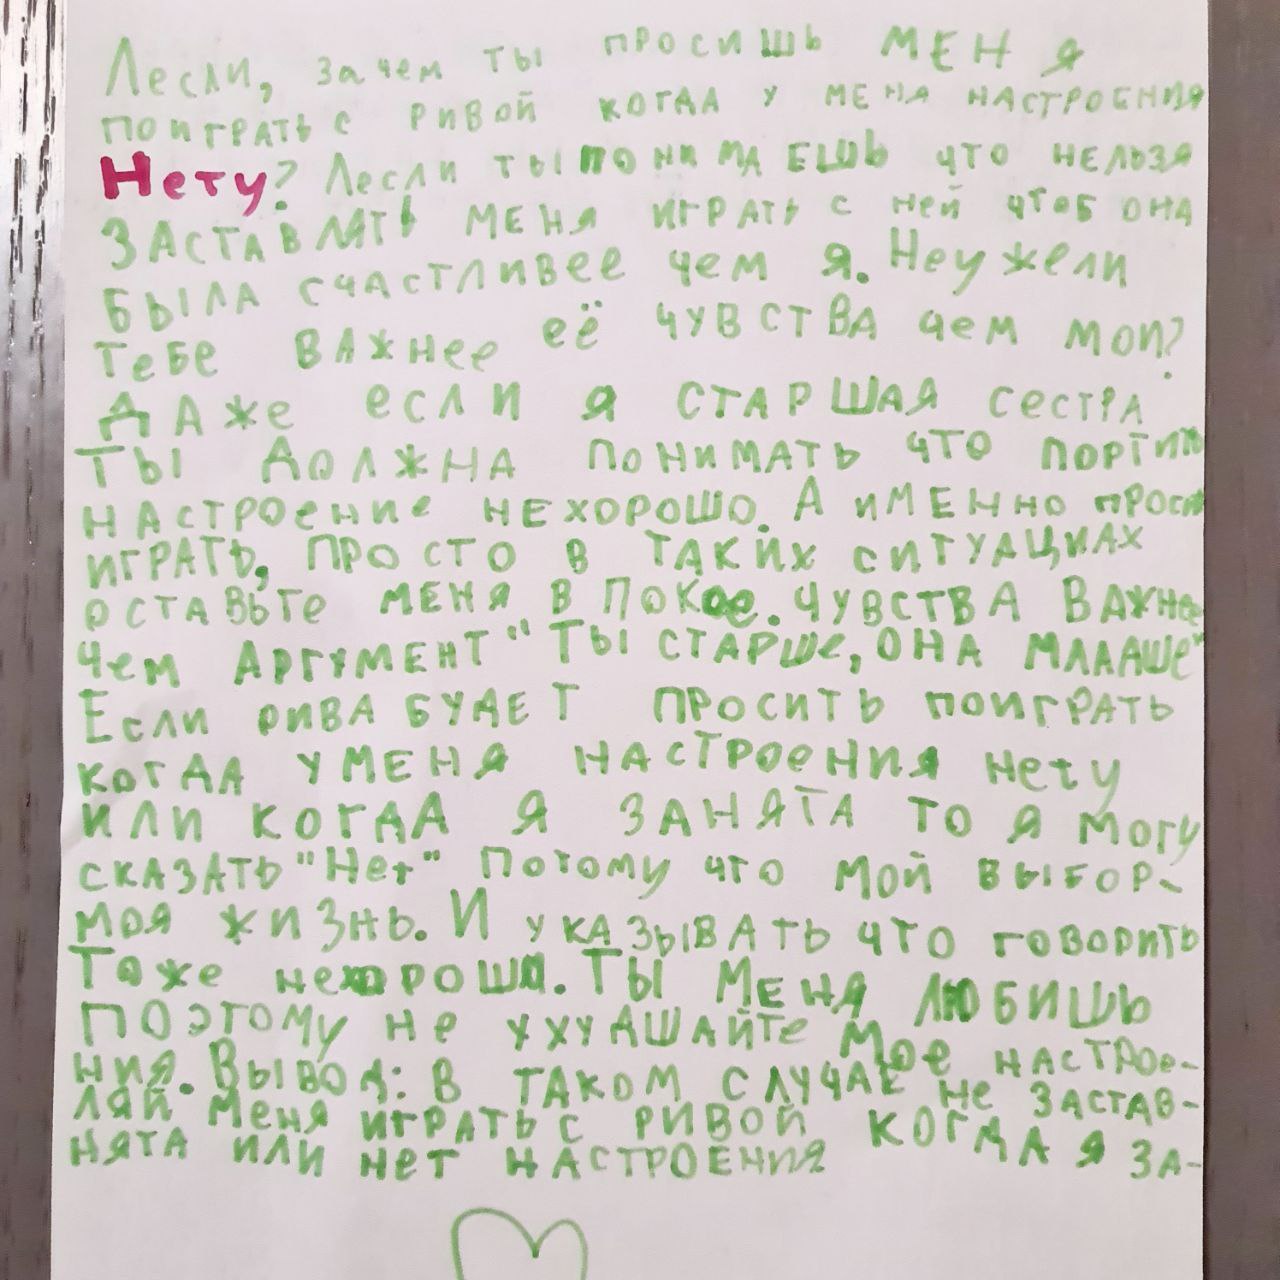 Лесли, зачем ты просишь меня
поиграть с ривой когда у меня настроения
Нету? Лесли ты понимаешь что нельзя
заставлять меня играть с ней чтоб она
была счастливее чем я. Неужели
тебе важнее её чувства чем мои?
Даже если я старшая сестра
ты должна понимать что портить
настроение нехорошо. А именно прося
играть, просто в таких ситуациях
оставьте меня в покое. чувства важнее
чем аргумент "Ты старше, она младше"
Если рива будет просить поиграть
когда у меня настроения нету
или когда я занята то я могу
сказать "Нет" Потому что мой выбор-
моя жизнь. И указывать что говорить
тоже нехорошо. Ты меня любишь
Поэтому не ухудшайте мое настрое-
ния. Вывод: в таком случае не застав-
ляй меня играть с ривой когда я за-
нята или нет настроения